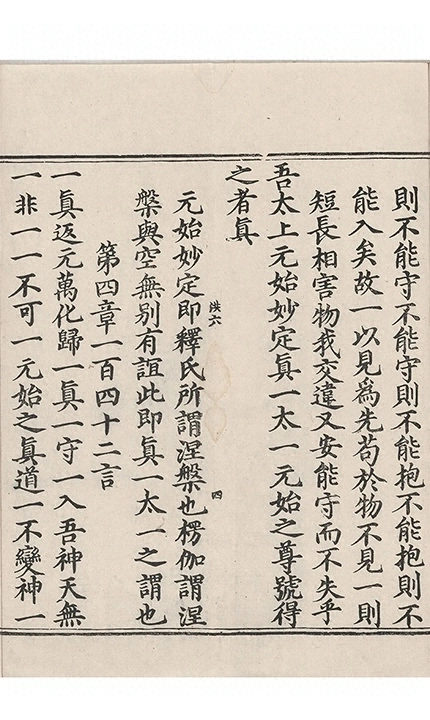 則不能守不能守則不能抱不能抱則不
能入矣故一以見爲先苟於物不見一則
短長相害物我交違又安能守而不失乎
吾太上元始妙定眞一太一元始之尊號得
之者眞
洪六
四
元始妙定即釋氏所謂涅槃也楞伽謂涅
槃與空無别有誼此即眞一太一之謂也
第四章一百四十二言
一眞返元萬化歸一眞一守一入吾神天無
一非一一不可一元始之眞道一不變神一